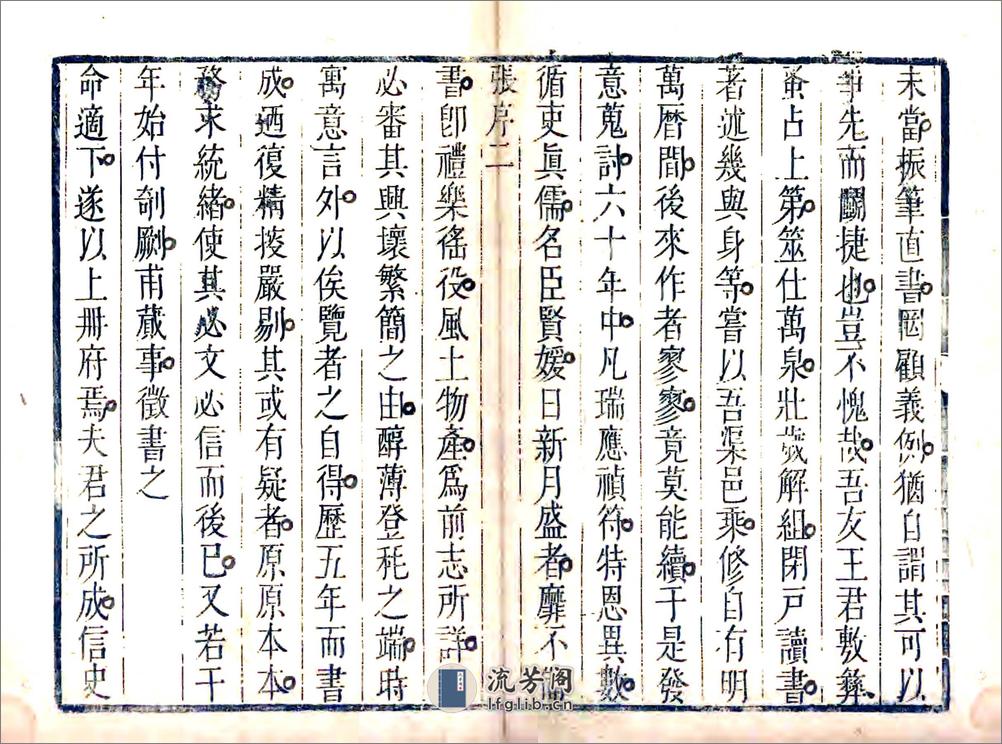 未當振筆直書罔顧義例猶自謂其可以
爭先而鬬捷也豈不愧哉吾友王君敷彝
蚤占上第筮仕萬泉壯歲解組閉戸讀書
著述幾與身等嘗以吾渠邑乘修自有明
萬曆間後來作者寥寥竟莫能續于是發
意蒐討六十年中凡瑞應禎符特恩異數
循吏眞儒名臣賢媛日新月盛者靡不
張序二
書卽禮樂徭役風土物產爲前志所詳
必審其興壞繁簡之由醇薄登耗之端時
寓意言外以俟覽者之自得歷五年而書
成廼復精擇嚴剔其或有疑者原原本本
務求統緒使其必文必信而後已又若干
年始付剞劂甫蕆事徵書之
命適下遂以上册府焉夫君之所成信史
流芳阁
lfglib.cn